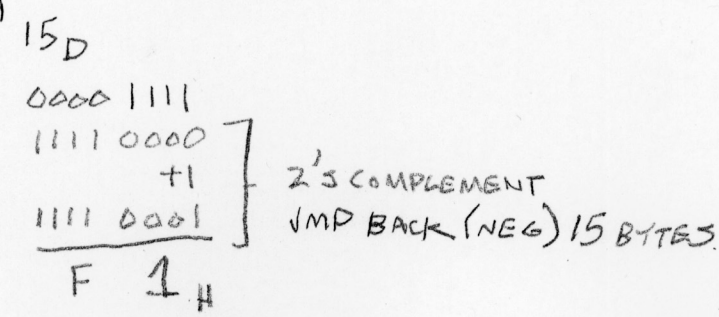 )
15D
0000 1111
1111 0000
+1
1111 0001
F 1 H
2'S COMPLEMENT
JMP BACK (NEG) 15 BYTES.